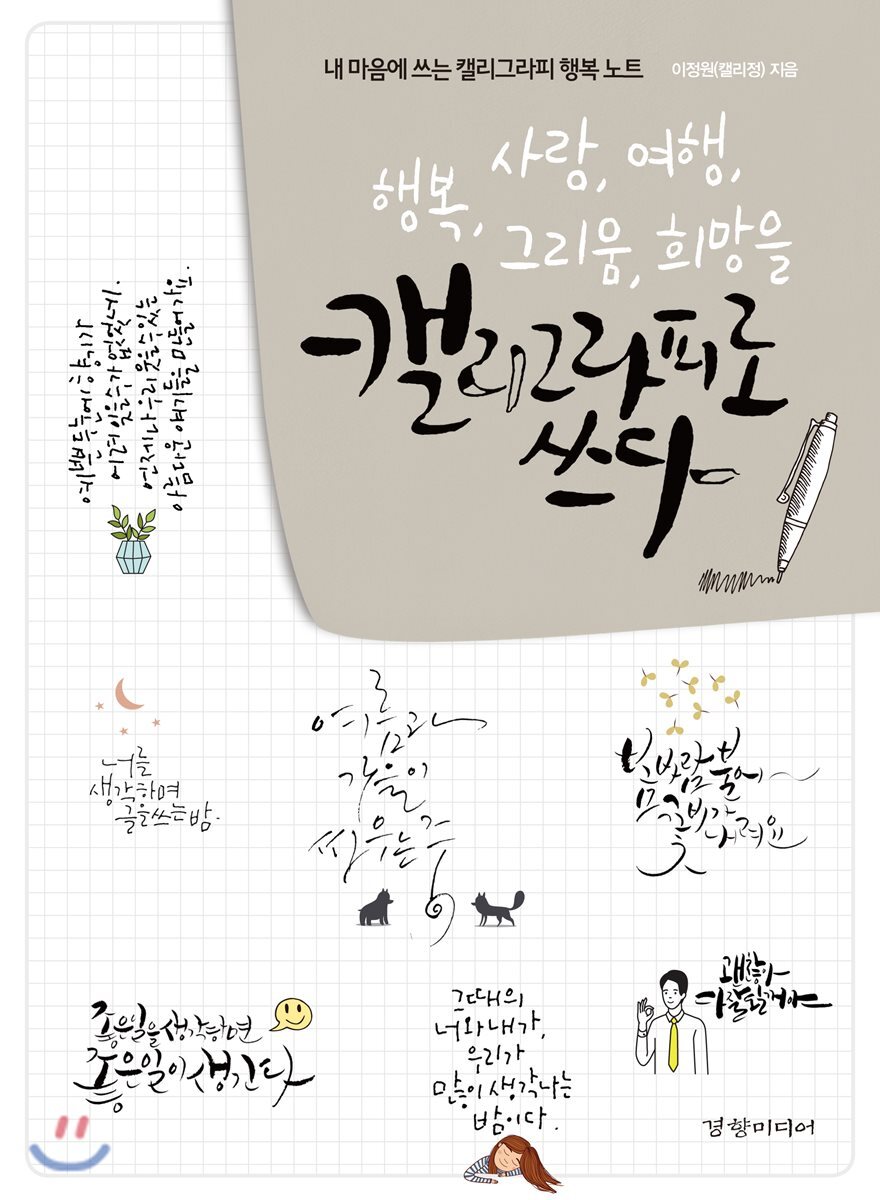 내 마음에 쓰는 캘리그라피 행복 노트
이정원(캘리정) 지음
행복, 사랑, 여행,
그리움, 희망을
캘리그라피로
쓰다
예쁜 두 눈에 향기가
어려 잊을 수가 없었네.
언제나 우리 웃을 수 있는
아름다운 얘기들을 만들어가요.
너를
생각하며
글을 쓰는 밤.
여름과
가을이
싸우는 중
봄바람 불어
꽃비가 내려요
좋은 일을 생각하면
좋은 일이 생긴다
그때의
너와 내가,
우리가
많이 생각나는
밤이다.
괜찮아
다 잘 될꺼야
경향미디어